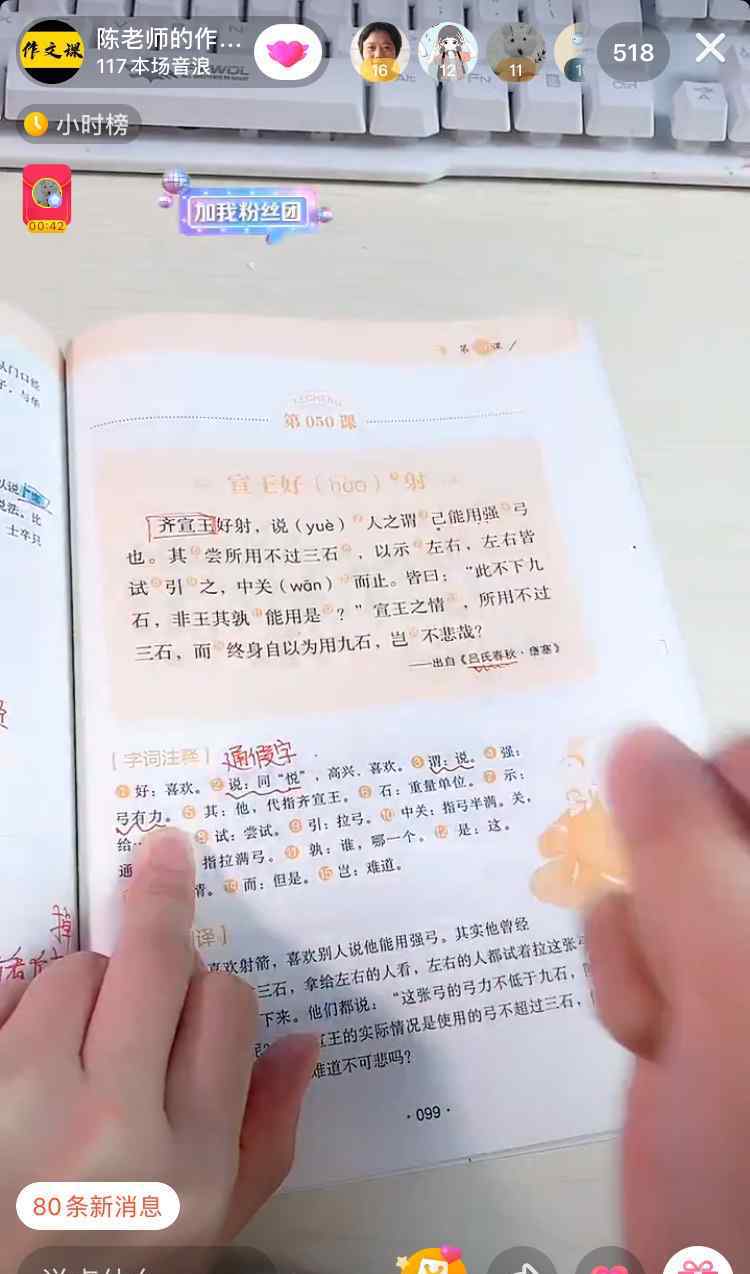 作文课
陈老师的作...
117本场音浪
16
12
11
518
小时榜
00:42
加我粉丝团
第 课
第050课
宣王好(hào)①射
齐宣王好射,说(yuè)②人之谓③己能用强④弓
也。其⑤尝所用不过三石⑥,以示⑦左右,左右皆
试⑧引⑨之,中关(wān)⑩而止。皆曰:“此不下九
石,非王其孰⑪能用是⑫?”宣王之情⑬,所用不过
三石,而⑭终身自以为用九石,岂⑮不悲哉?
——出自《吕氏春秋·壅塞》
【字词注释】通假字
①好:喜欢。②说:同“悦”,高兴、喜欢。③谓:说。④强:
弓有力。⑤其:他,代指齐宣王。⑥石:重量单位。⑦示:
给 ⑧试:尝试。⑨引:拉弓。⑩中关:指弓半满。关,
通 指拉满弓。⑪孰:谁,哪一个。⑫是:这。
情。⑭而:但是。⑮岂:难道。
译】
喜欢射箭,喜欢别人说他能用强弓。其实他曾经
三石,拿给左右的人看,左右的人都试着拉这张弓
下来。他们都说:“这张弓的弓力不低于九石,
宣王的实际情况是使用的弓不超过三石,
难道不可悲吗?
·099·
以说
说法。比
士卒只
掉
80条新消息